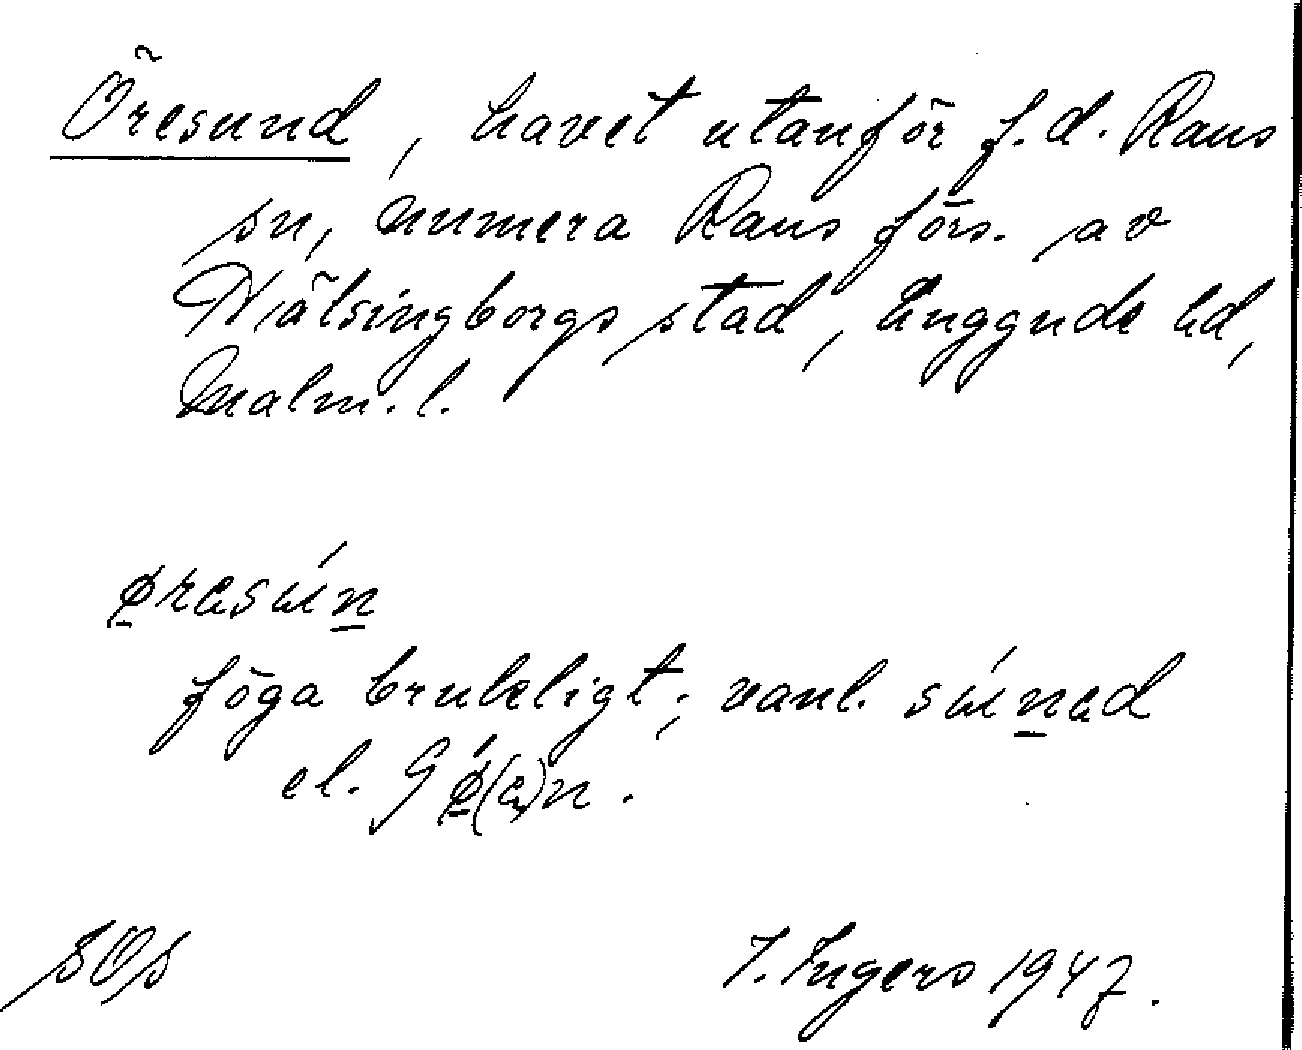 Öresund, havet utanför f.d. Raus
sn, numera Raus förs. av
Hälsingborgs stad, Luggude hd,
Malm. l.
ø̱resɯ́ṉ
föga brukligt; vanl. sɯ́ṉəd
el.
SOs
I. Ingers 1947.